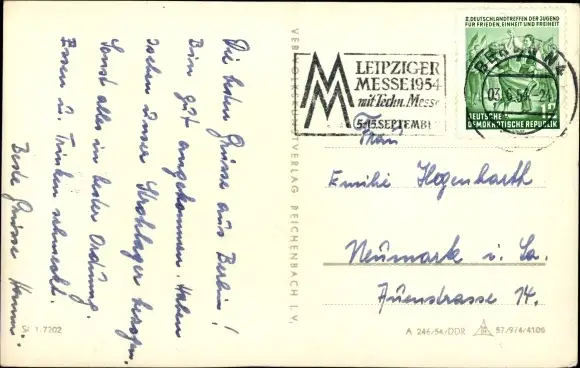 Die besten Grüsse aus Berlin!
Bin gut angekommen. Haben
schon unser Strohlager bezogen.
Sonst alles in bester Ordnung.
Essen u. Trinken schmeckt.
Beste Grüsse
St 1/7202
VERLAG REICHENBACH I. V.
LEIPZIGER
MESSE 1954
mit Techn. Messe
5.-15. SEPTEMB
II. DEUTSCHLANDTREFFEN DER JUGEND
FÜR FRIEDEN, EINHEIT UND FREIHEIT
DEUTSCHE
DEMOKRATISCHE REPUBLIK
BERLIN N4
Frau
Emilie Hogenharth
Neumark i. Sa.
Auenstrasse 14.
A 246/54/DDR 57/974/4106